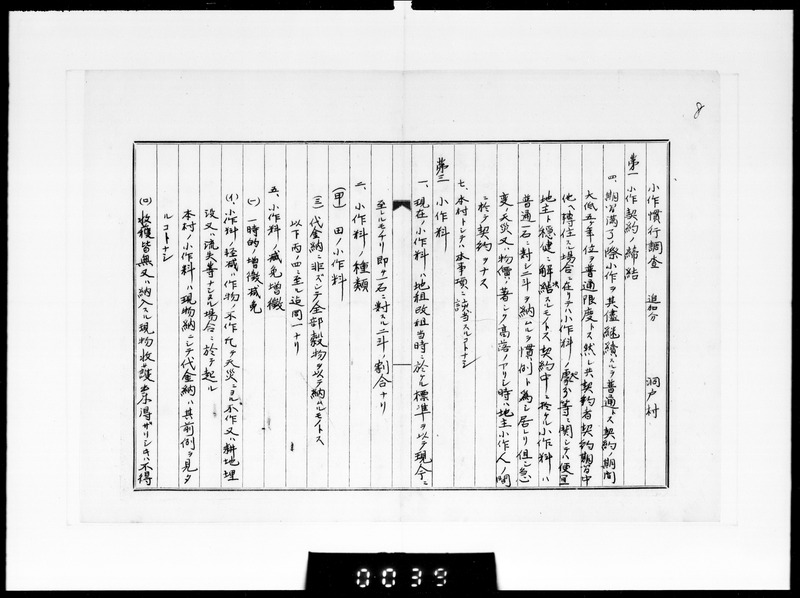 8
小作慣行調査 追加分 洞戸村
第一 小作契約ノ締結
四、期間満了ノ際小作ヲ其儘継続スルヲ普通トス契約ノ期間
大低五ヶ年位ヲ普通限度トス然レ共契約者契約期間中
他ヘ轉住スル場合ニ在リテハ小作料ノ 等ニ関シテハ便宜
地主ト穏健ニ解決スルモノトス契約中ニ於ケル小作料ハ
普通一石ニ対シ二斗ヲ納ムルヲ慣例ト為シ居レリ但シ急
変ノ天災又ハ物價ノ著シク高落ノアリシ時ハ地主小作人ノ間
ニ於テ契約ヲナス
七、本村トシテハ本事項ニ該当スルコトナシ
第三 小作料
一、現在ノ小作料ハ地租改租当時ニ於ケル標準ヲ以テ現今ニ
至レルモノナリ即チ一石ニ対スル二斗ノ割合ナリ
二、小作料ノ種類
(甲) 田ノ小作料
(三) 代金納ニ非ズシテ全部穀物ヲ以テ納ムルモノトス
以下丙ノ四ニ至ル迄同一ナリ
五、小作料ノ減免増徴
(一) 一時的ノ増徴減免
(イ) 小作料ノ軽減ハ作物ノ不作凡テ天災ニヨル不作又ハ耕地埋
没又ハ流失等ナシタル場合ニ於テ起ル
本村ノ小作料ハ現物納ニシテ代金納ハ其前例ヲ見タ
ルコトナシ
(ロ) 收穫皆無又ハ納入スル現物收穫出来得ザリシ時ハ不得
0039